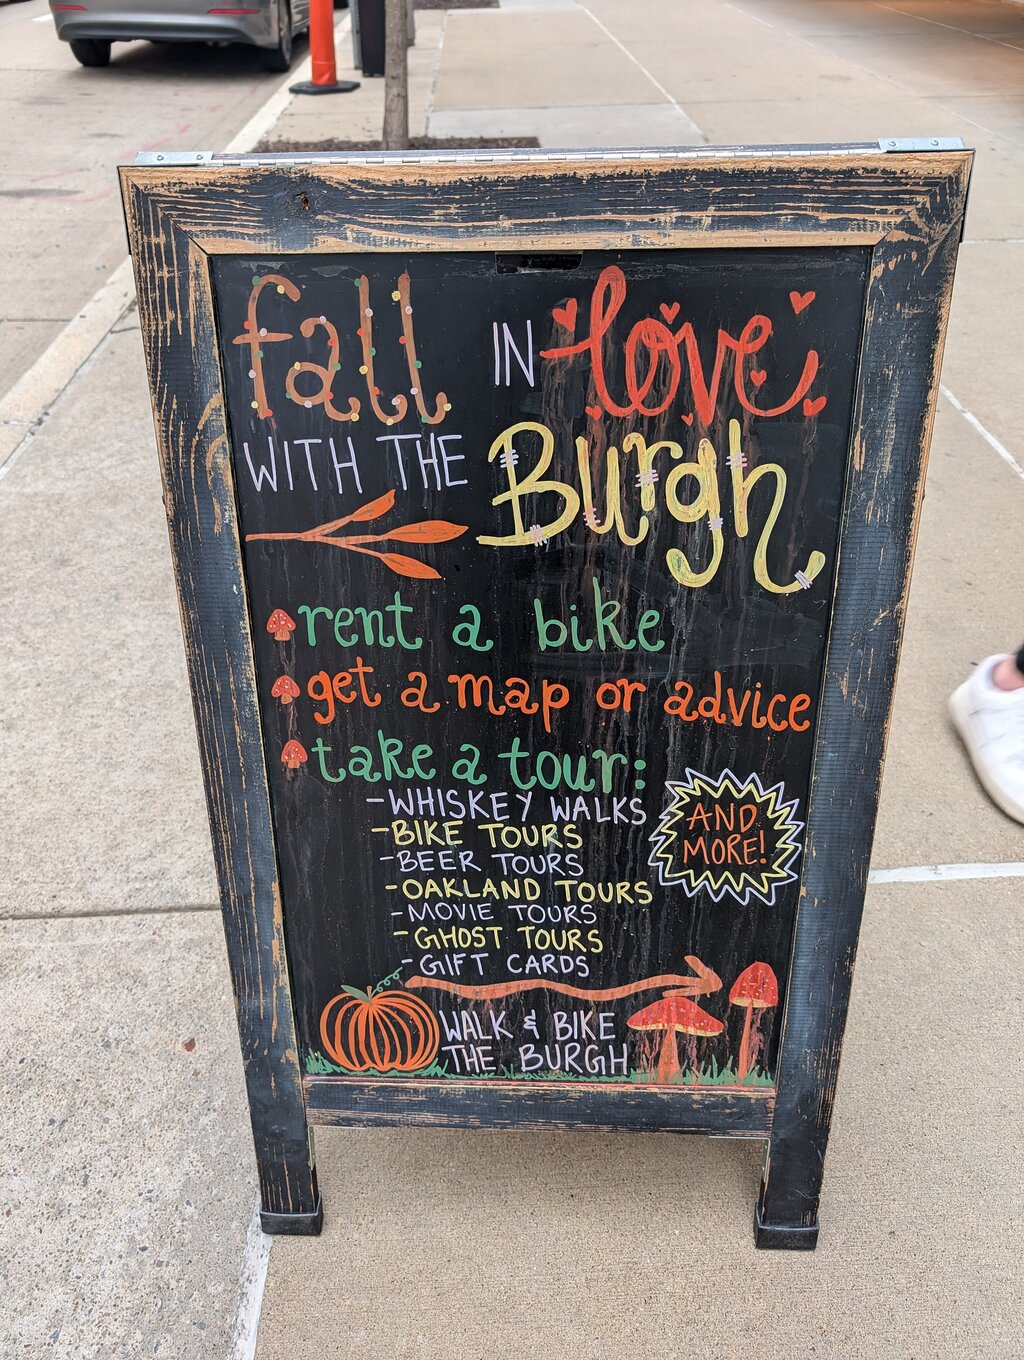 fall IN love
WITH THE Burgh
rent a bike
get a map or advice
take a tour:
-WHISKEY WALKS
-BIKE TOURS
-BEER TOURS
-OAKLAND TOURS
-MOVIE TOURS
-GHOST TOURS
-GIFT CARDS
AND
MORE!
WALK & BIKE
THE BURGH